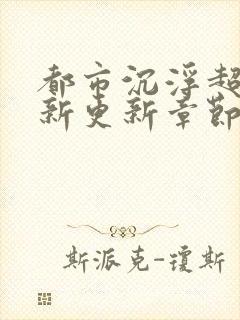 都市沉浮超
新更新章節
斯派克-瓊斯